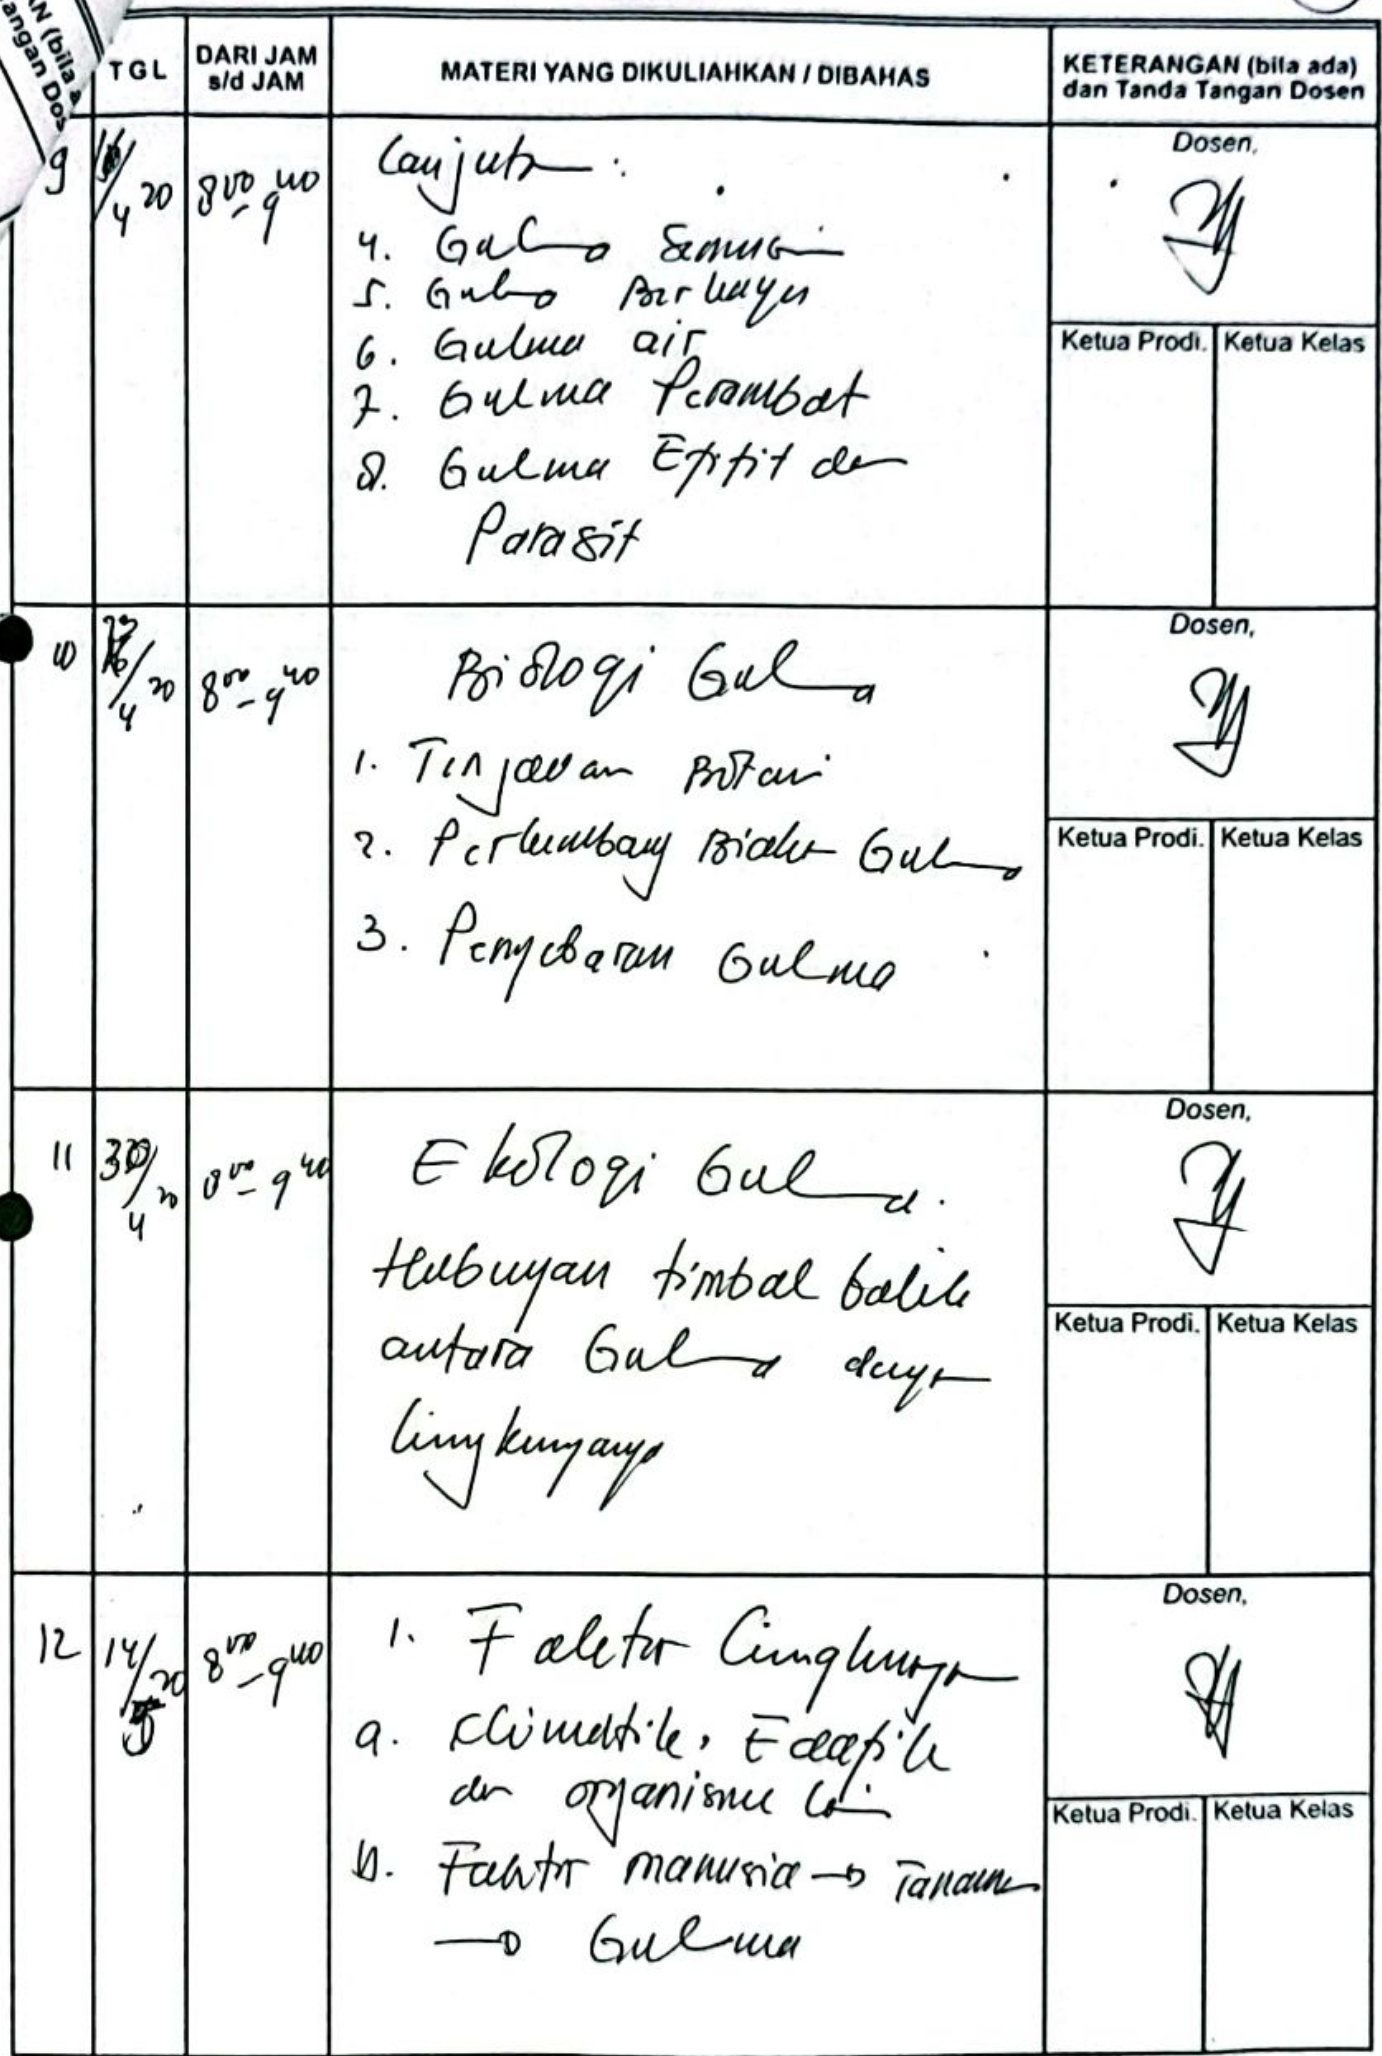 N (bila a
angan Dos
TGL
DARI JAM
s/d JAM
MATERI YANG DIKULIAHKAN / DIBAHAS
KETERANGAN (bila ada)
dan Tanda Tangan Dosen
9
/4 20
8 00 - 9 40
Lanjutan :
4. Gulma Semusim
5. Gulma Berkayu
6. Gulma air
7. Gulma Perambat
8. Gulma Epifit dan
Parasit
Dosen,
Ketua Prodi.
Ketua Kelas
10
/4 20
8 00 - 9 40
Biologi Gulma
1. Tinjauan Botani
2. Perkembang Biakan Gulma
3. Penyebaran Gulma
Dosen,
Ketua Prodi.
Ketua Kelas
11
30/4 20
8 00 - 9 40
Ekologi Gulma.
Hubungan timbal balik
antara Gulma dengan
lingkungannya
Dosen,
Ketua Prodi.
Ketua Kelas
12
14/5 20
8 00 - 9 40
1. Faktor Lingkungan
a. Klimatik, Edafik
dan organisme lain
b. Faktor manusia → Tanaman
→ Gulma
Dosen,
Ketua Prodi.
Ketua Kelas